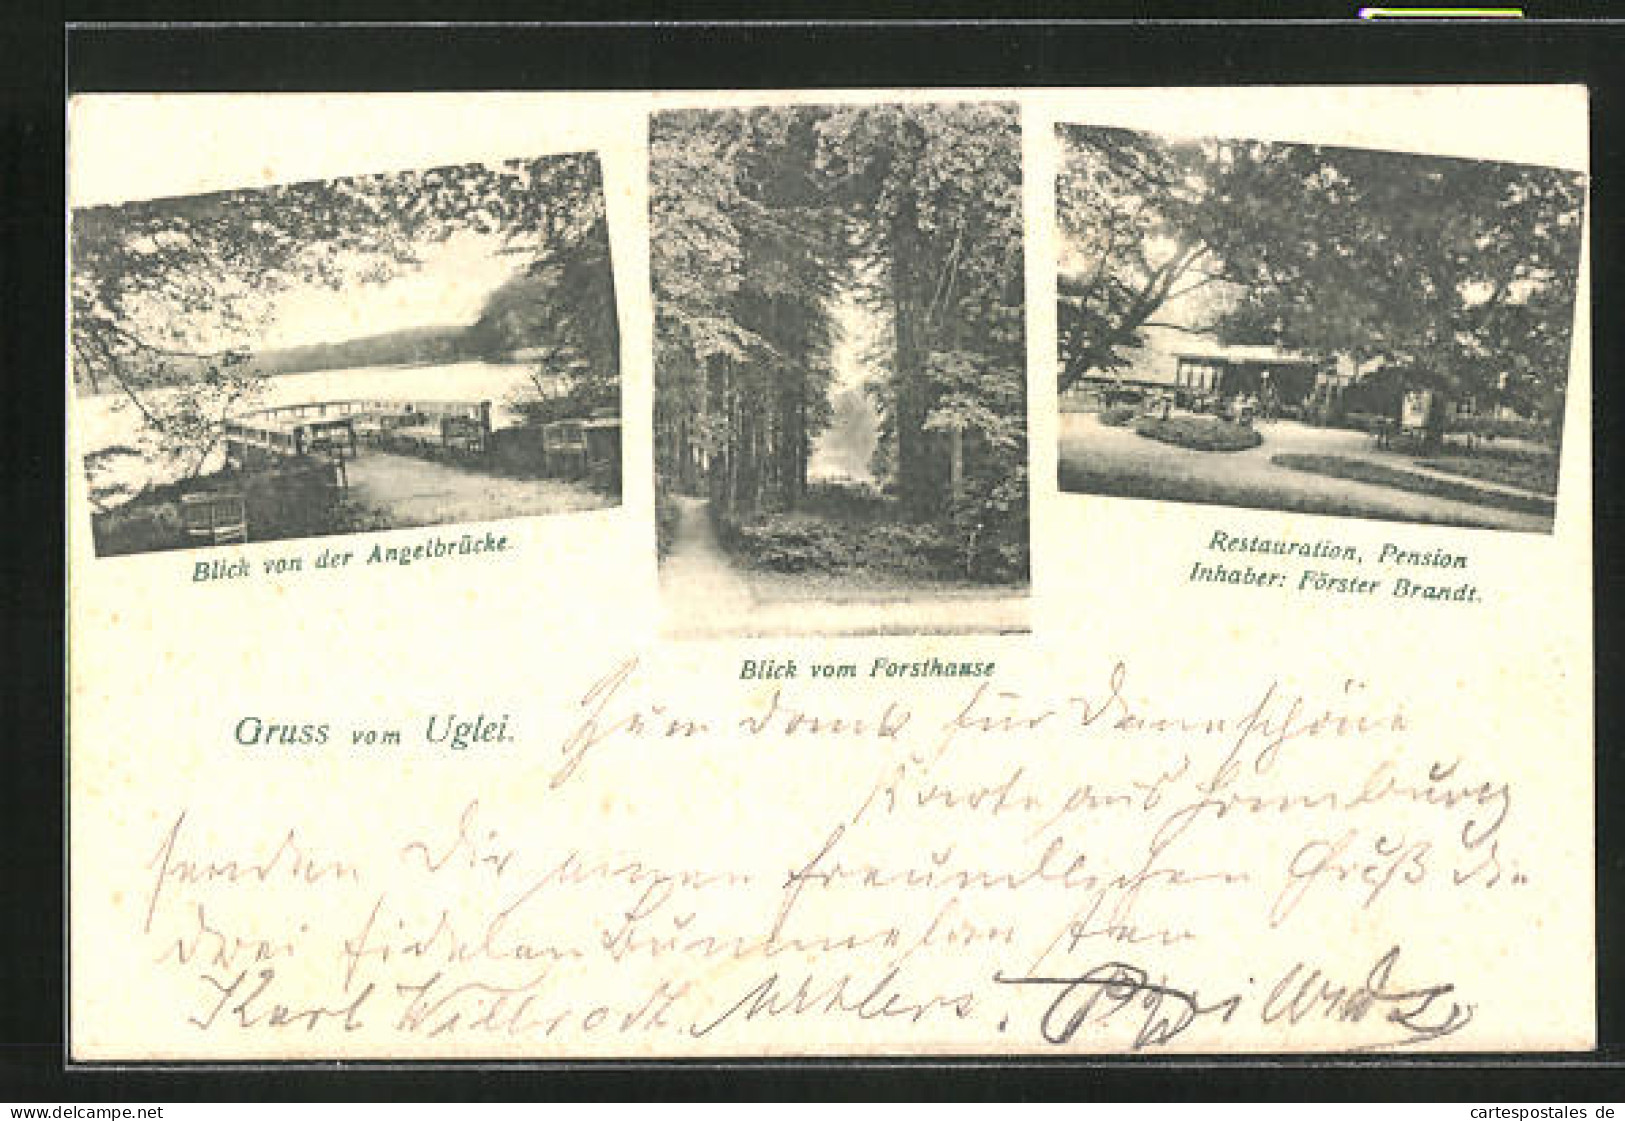 Blick von der Angelbrücke.
Restauration, Pension
Inhaber: Förster Brandt.
Blick vom Forsthause
Gruss vom Uglei.
Zum Dank für Deine schöne
Karte aus Hamburg
senden Dir einen freundlichen Gruß die
drei fidelen
Karl Willbrodt. W. Ahlers.
www.delcampe.net
cartespostales de